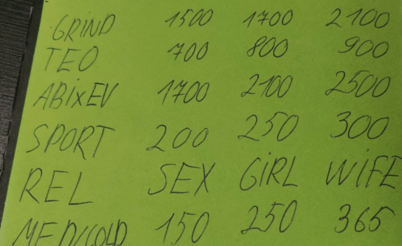 GRIND 1500 1700 2100
TEO 700 800 900
ABIXEV 1700 2100 2500
SPORT 200 250 300
REL SEX GIRL WIFE
MED/COLD 150 250 365